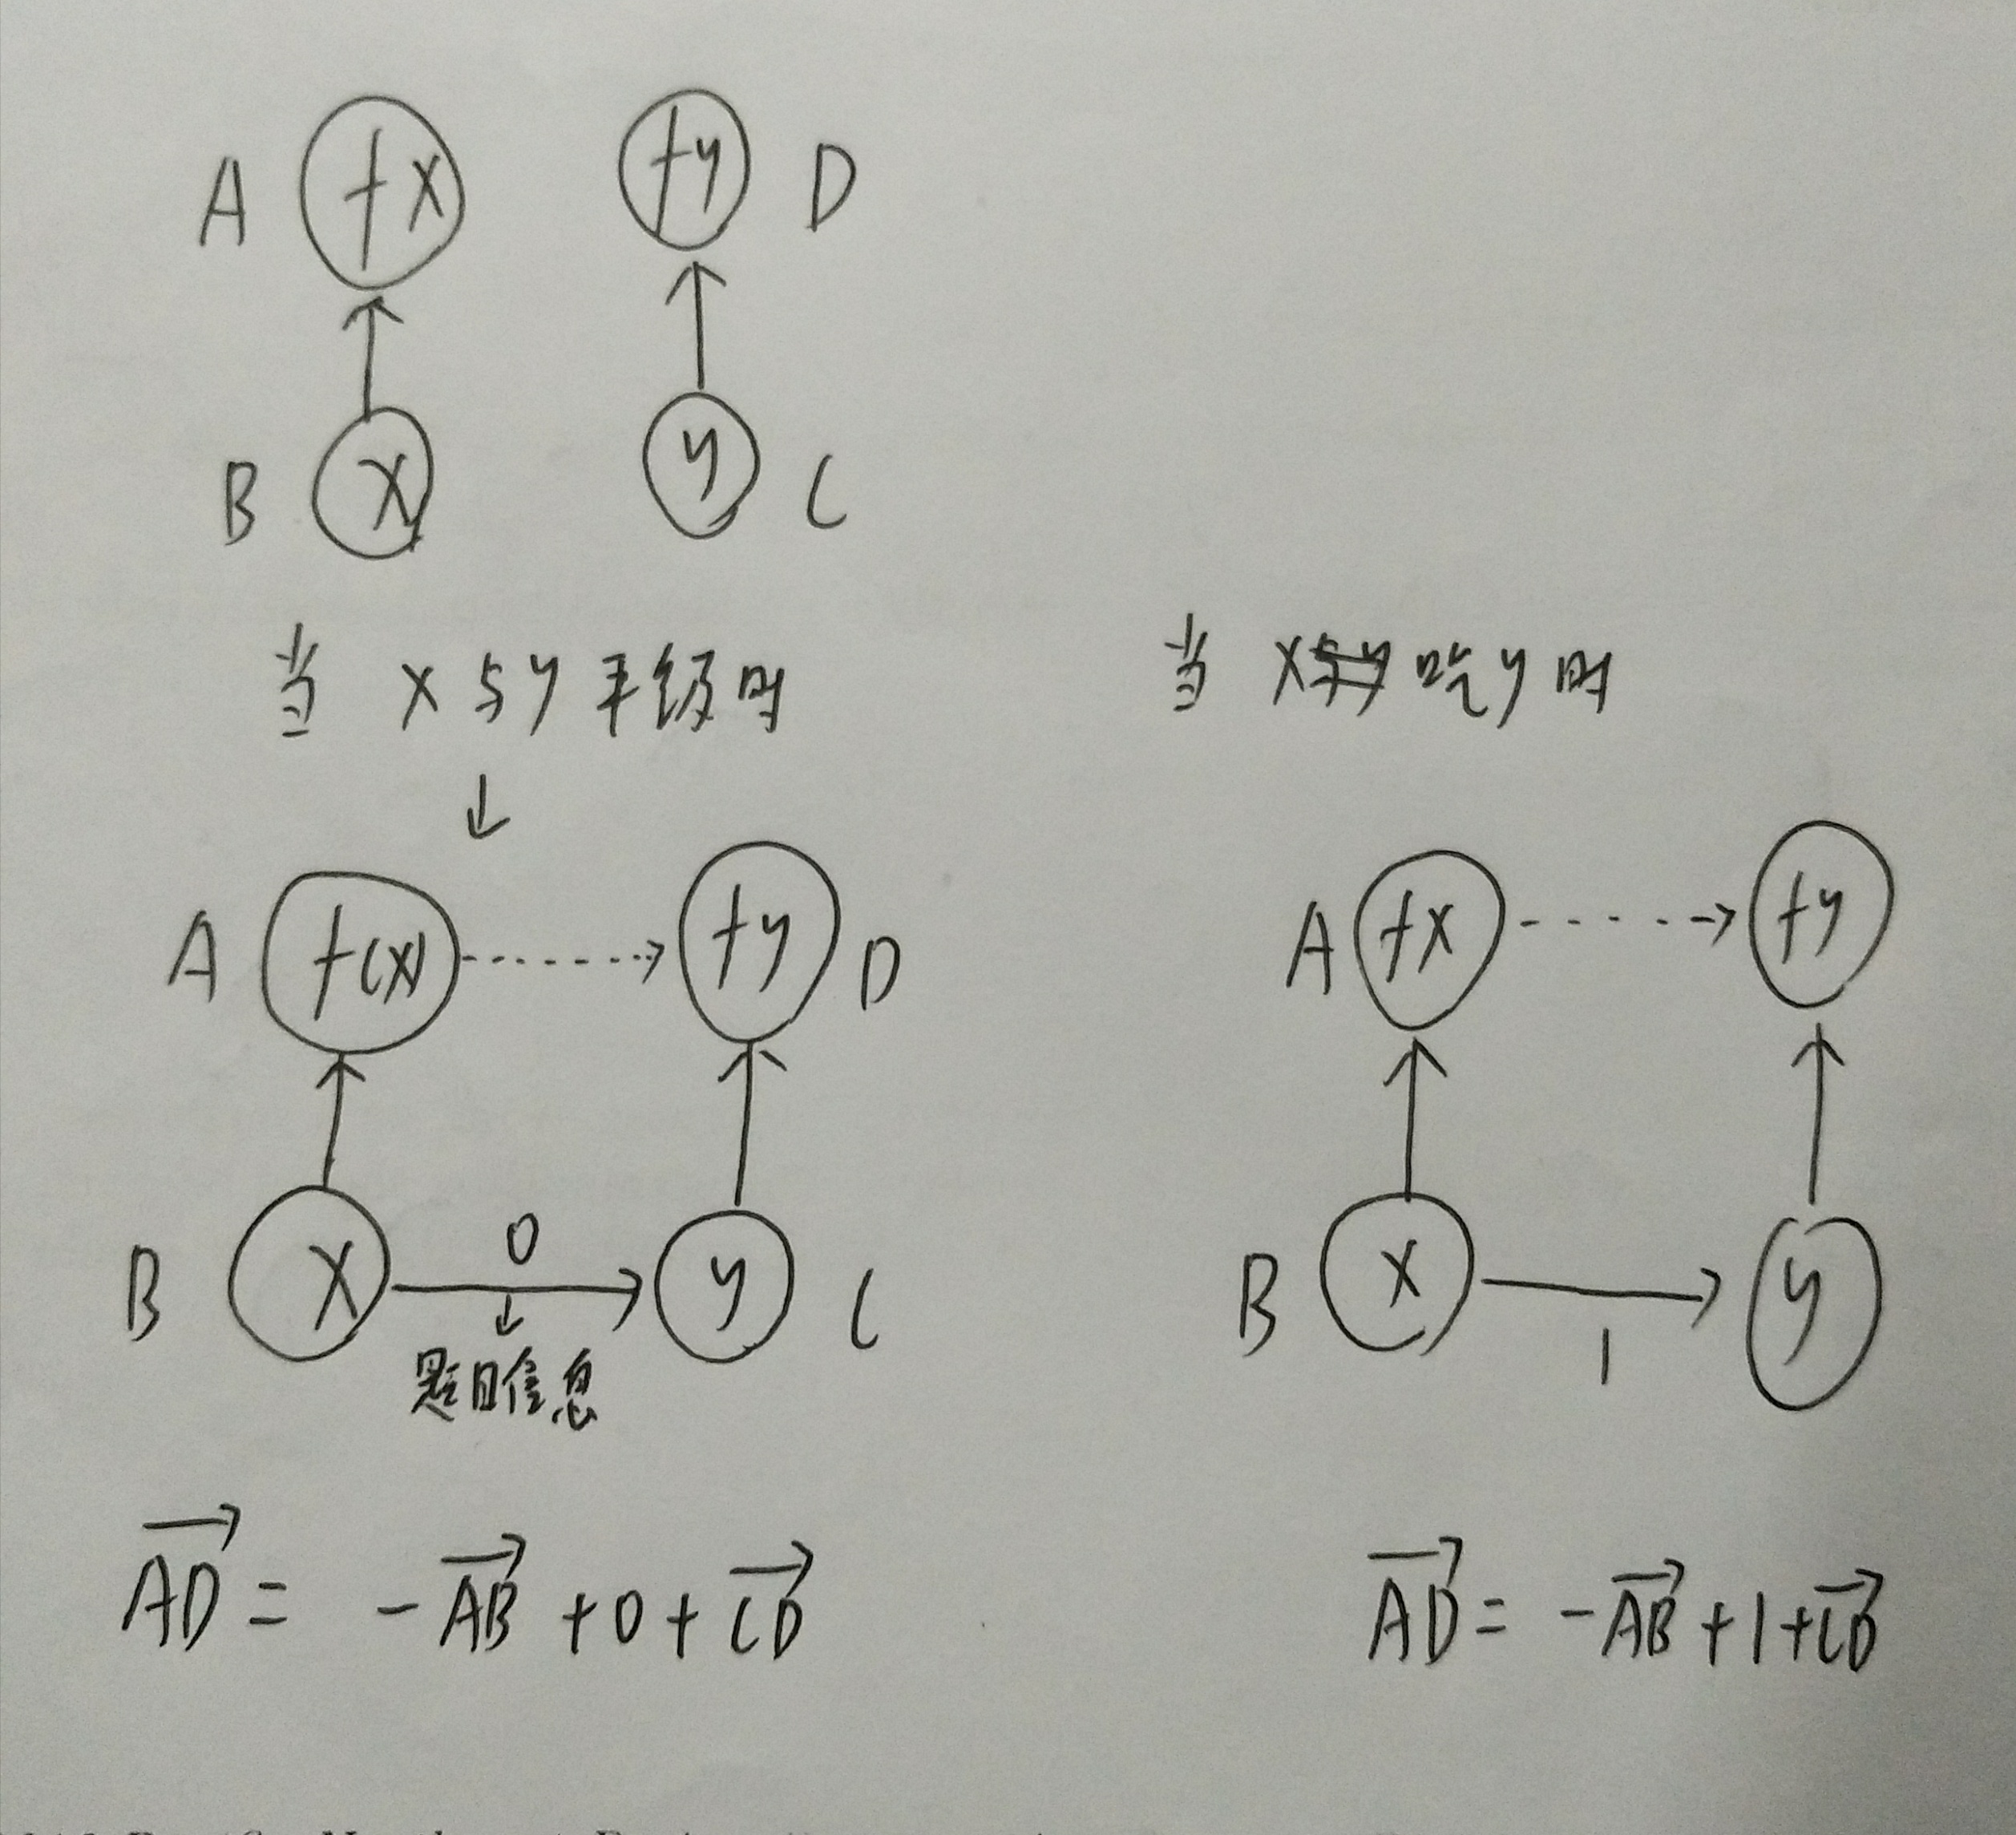 A fx fy D
B x y C
当 x与y平级时
当 x吃y时
A f(x) fy D
A fx fy
0
B x y C
B x y
1
题目信息
AD = -AB + 0 + CD
AD = -AB + 1 + CD